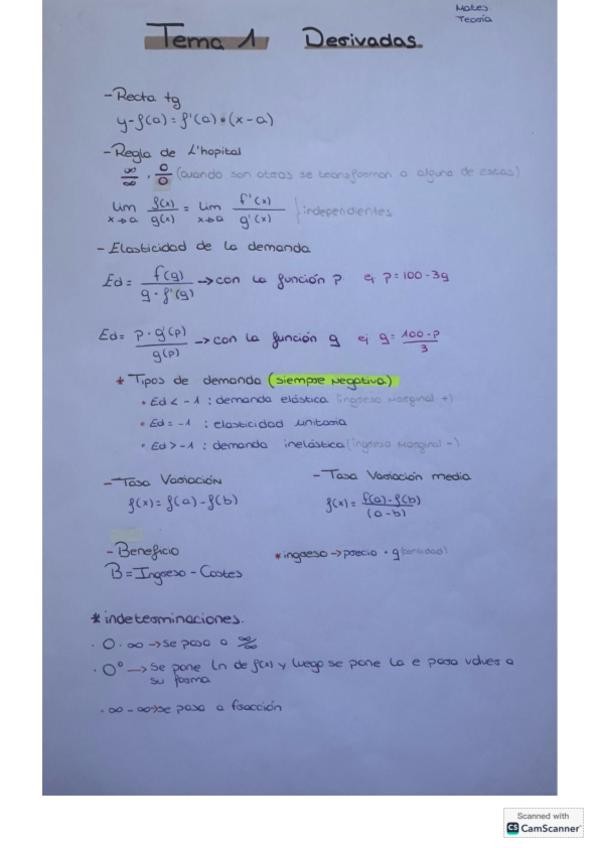 Mates
Teoría
Tema 1 Derivadas
- Recta tg
y-f(a)=f'(a)•(x-a)
- Regla de L'hopital
∞/∞ , 0/0 (cuando son otras se transforman a alguna de esas)
lim x→a f(x)/g(x) = lim x→a f'(x)/g'(x) } independientes
- Elasticidad de la demanda
Ed= f(q)/q·f'(q) → con la función P ej P=100-3q
Ed= P·q'(P)/q(P) → con la función q ej q= 100-P/3
* Tipos de demanda (siempre negativa)
• Ed < -1 : demanda elástica (ingreso marginal +)
• Ed = -1 : elasticidad unitaria
• Ed > -1 : demanda inelástica (ingreso marginal -)
- Tasa Variación
f(x)= f(a)-f(b)
- Tasa Variación media
f(x)= f(a)-f(b)/(a-b)
- Beneficio
B=Ingreso - Costes
* ingreso → precio · q (cantidad)
* indeterminaciones.
· 0·∞ → se pasa a ∞/∞
· 0⁰ → Se pone ln de f(x) y luego se pone la e para volver a
su forma
· ∞-∞ → se pasa a fracción
Scanned with
CS CamScanner